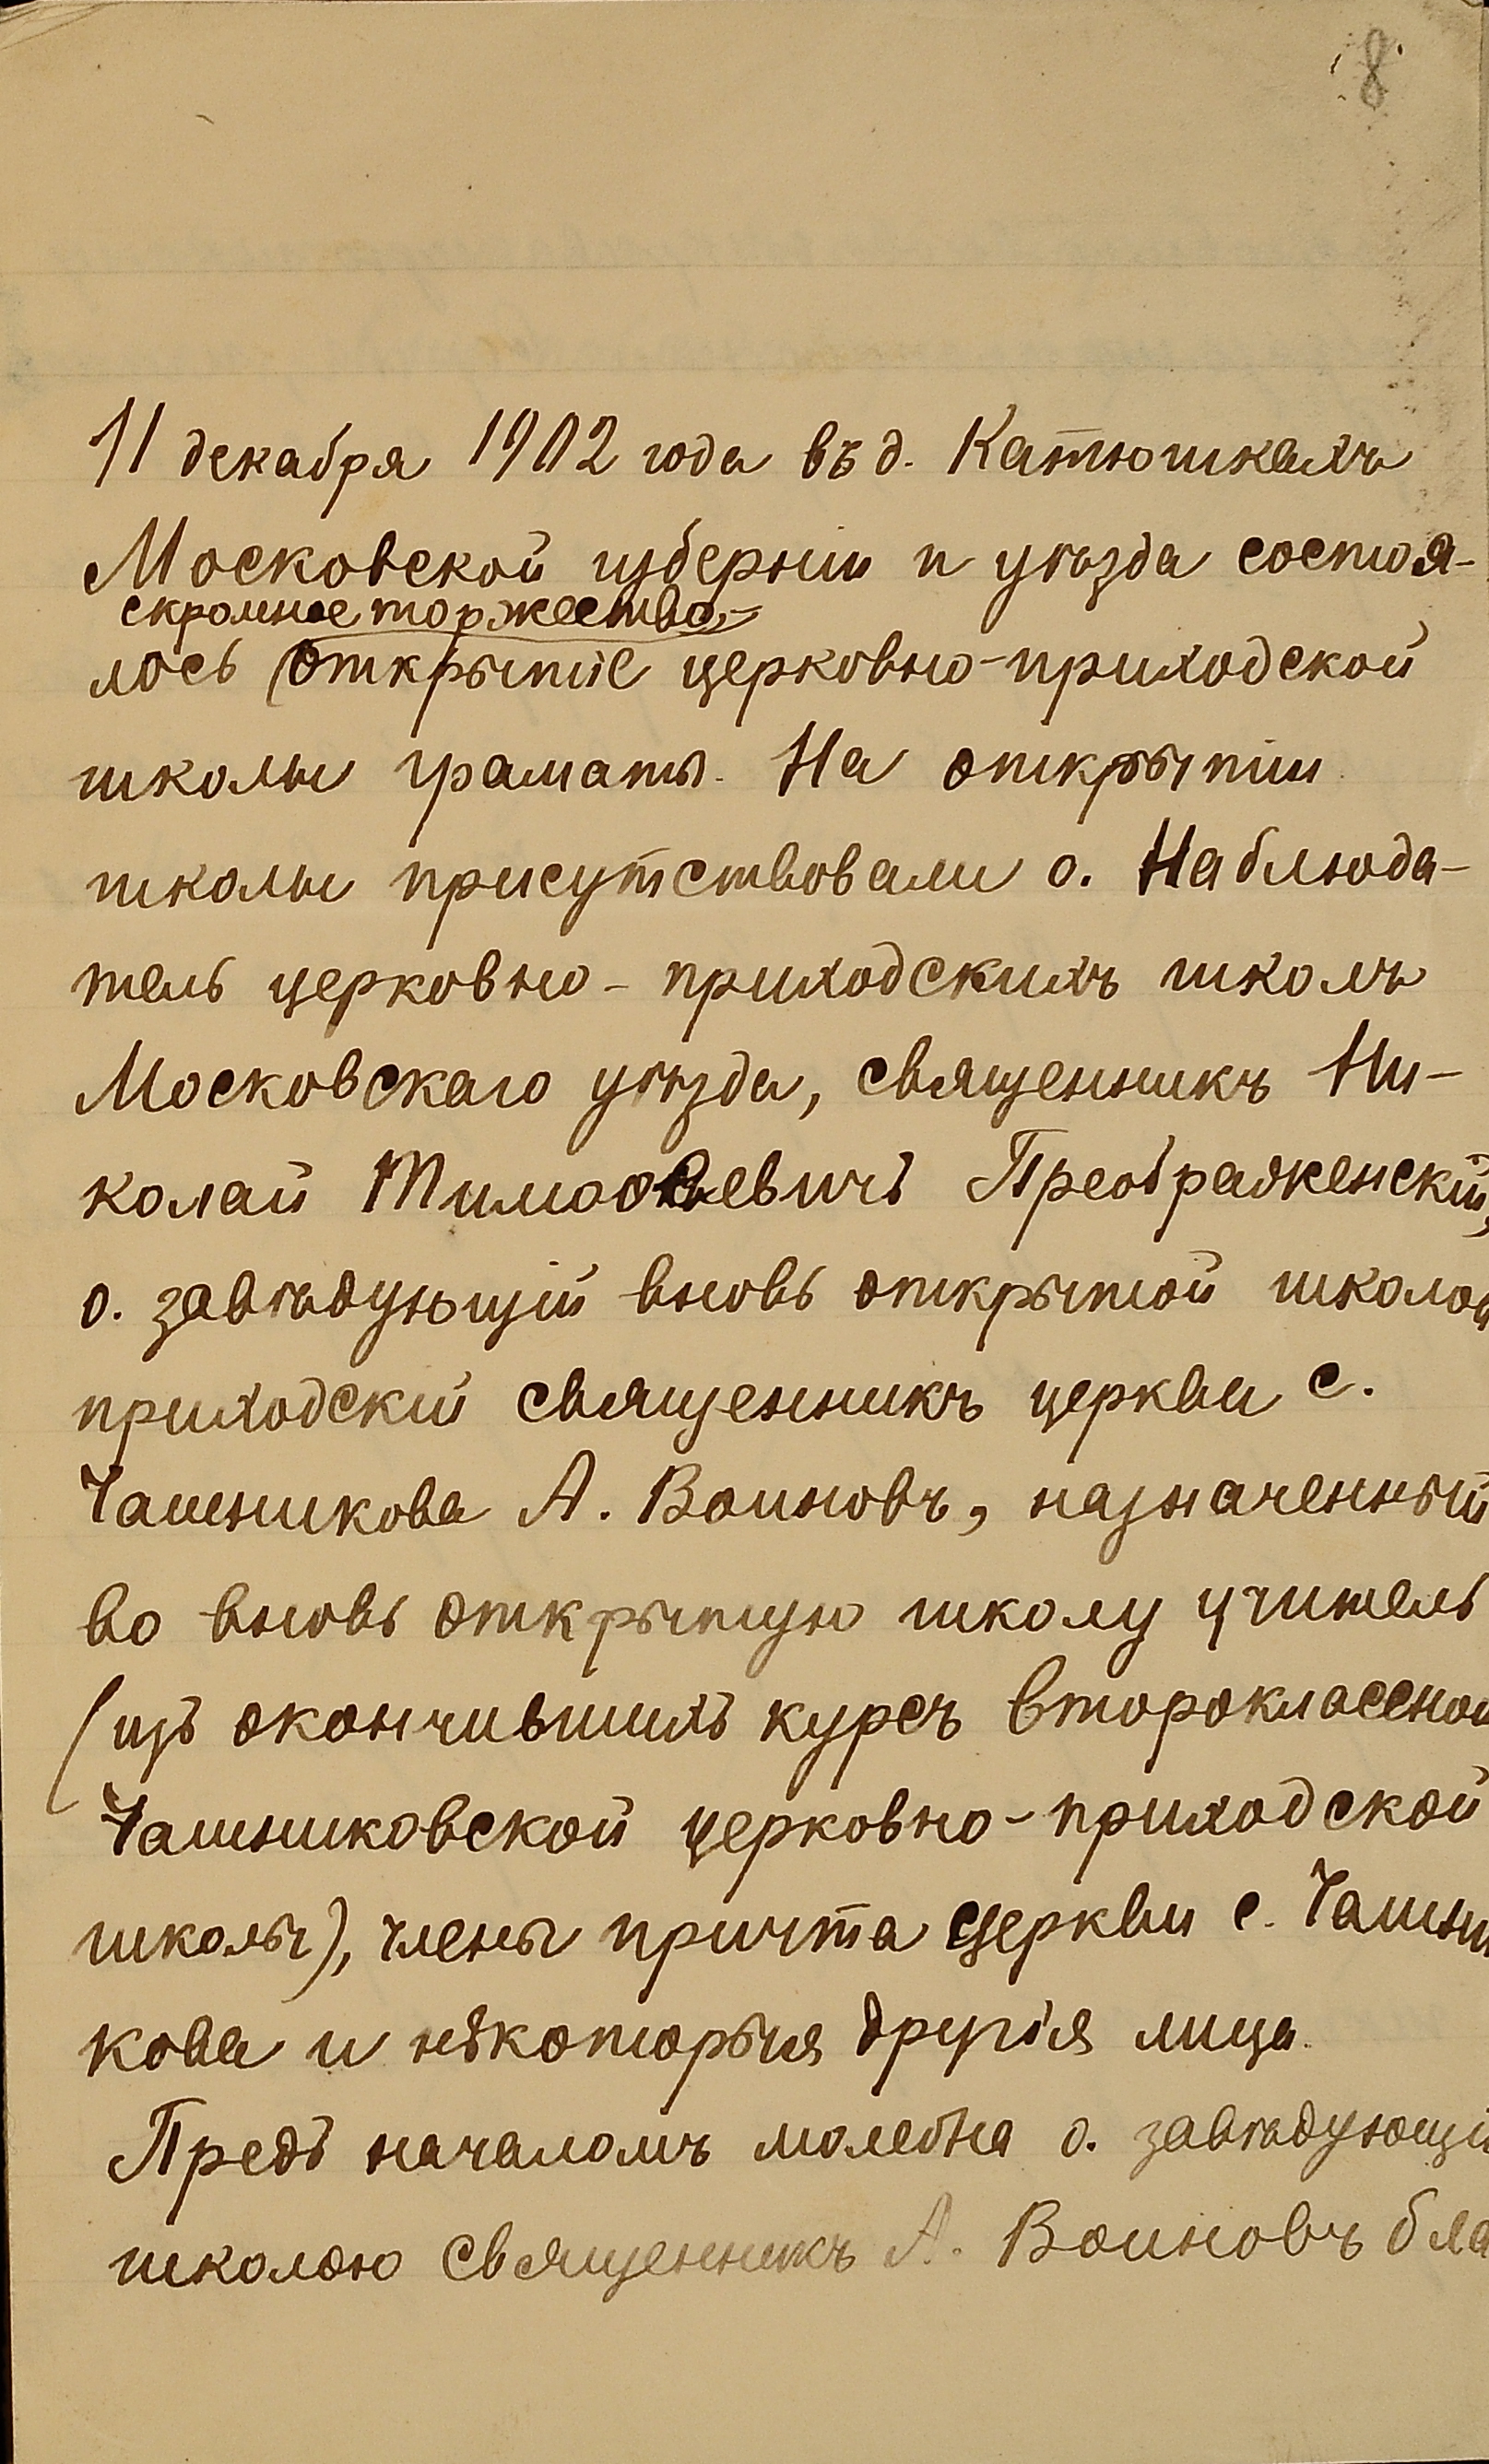 8
11 декабря 1902 года въ д. Катюшкахъ
Московской губерніи и уѣзда состоя-
скромное торжество
лось открытіе церковно-приходской
школы граматы. На открытіи
школы присутствовали о. Наблюда-
тель церковно-приходскихъ школъ
Московскаго уѣзда, священникъ Ни-
колай Преображенскій,
о. завѣдующій вновь открытой школой
приходскій священникъ церкви с.
Чашникова А. Воиновъ, назначенный
во вновь открытую школу учитель
(изъ окончившихъ курсъ второклассной
Чашниковской церковно-приходской
школы), члены причта церкви с. Чашни
кова и нѣкоторыя другія лица.
Предъ началомъ молебна о. завѣдующій
школою священникъ А. Воиновъ бла